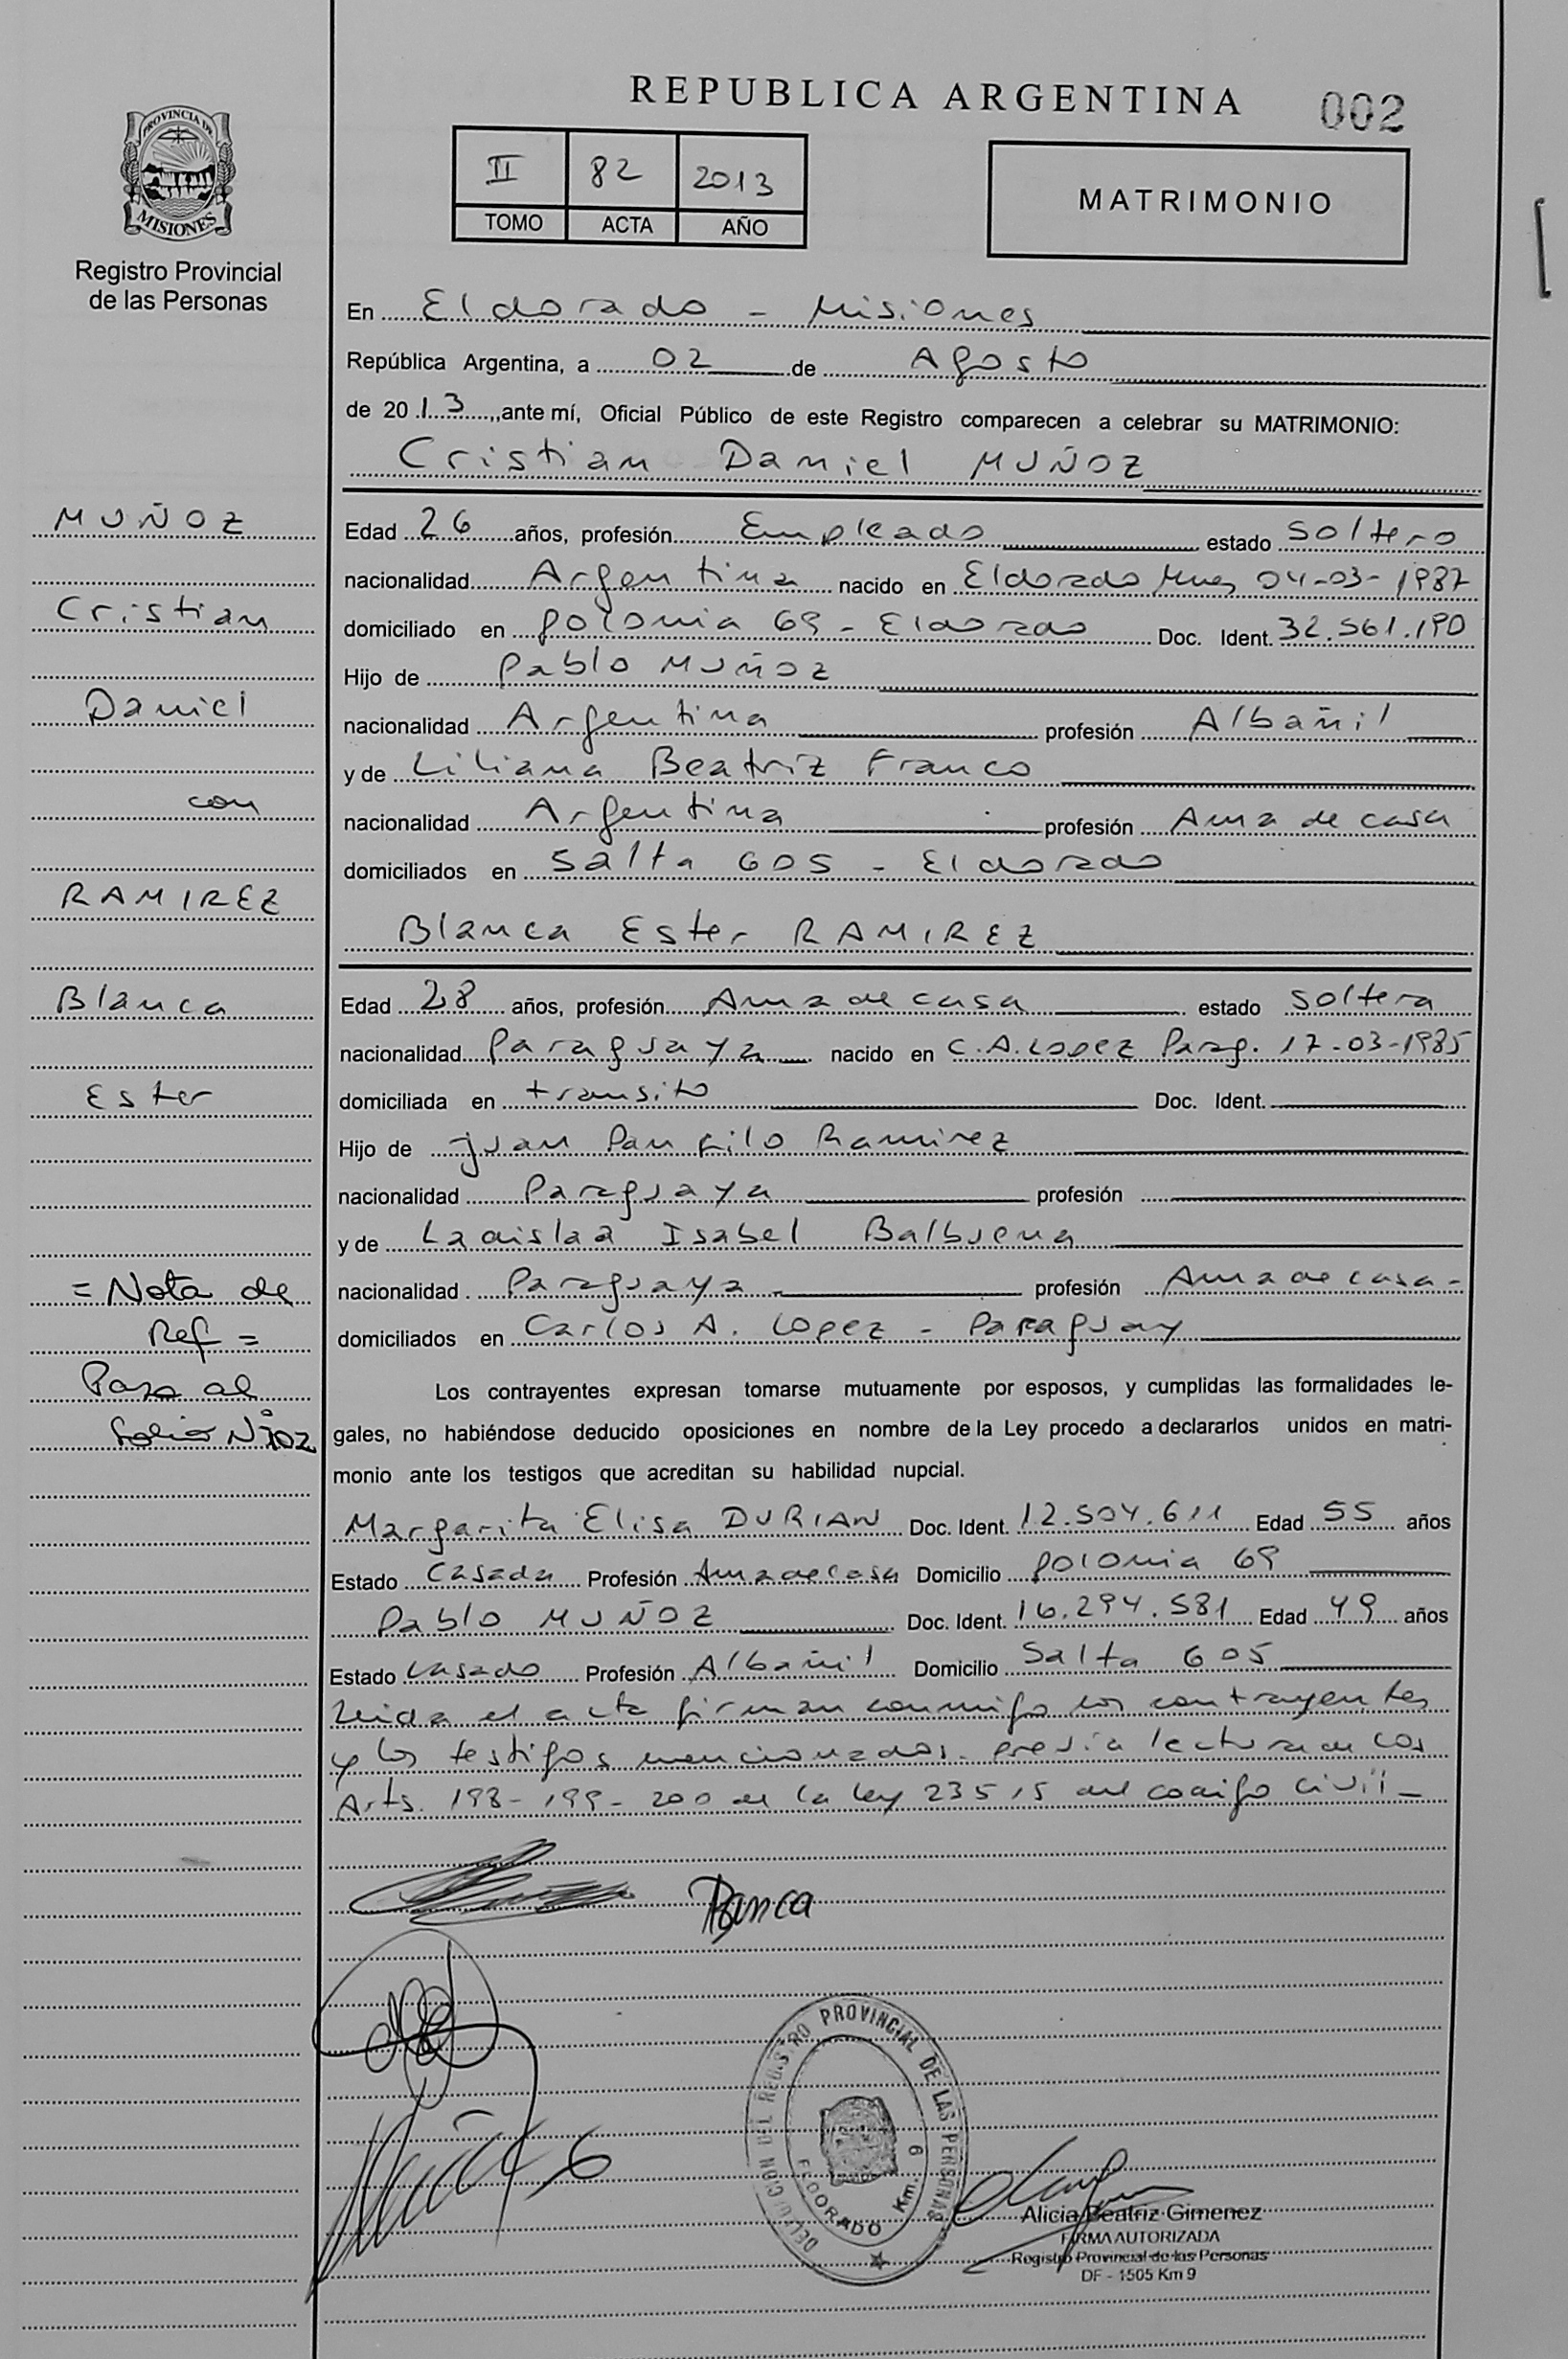 REPUBLICA ARGENTINA
002
PROVINCIA DE
MISIONES
Registro Provincial
de las Personas
II 82 2013
TOMO ACTA AÑO
MATRIMONIO
En Eldorado - Misiones
República Argentina, a 02 de Agosto
de 2013, ante mí, Oficial Público de este Registro comparecen a celebrar su MATRIMONIO:
Cristian Daniel MUÑOZ
MUÑOZ
Cristian
Daniel
con
RAMIREZ
Blanca
Ester
= Nota de
Ref =
Pasa al
folio Nº 102
Edad 26 años, profesión Empleado estado soltero
nacionalidad Argentina nacido en Eldorado Mnes 04-03-1987
domiciliado en polonia 69 - Eldorado Doc. Ident. 32.561.190
Hijo de Pablo MUÑOZ
nacionalidad Argentina profesión Albañil
y de Liliana Beatriz Franco
nacionalidad Argentina profesión Ama de casa
domiciliados en Salta 605 - Eldorado
Blanca Ester RAMIREZ
Edad 28 años, profesión Ama de casa estado soltera
nacionalidad Paraguaya nacido en C.A. Lopez Parag. 17-03-1985
domiciliada en transito Doc. Ident.
Hijo de juan Panfilo Ramirez
nacionalidad Paraguaya profesión
y de Ladislaa Isabel Balbuena
nacionalidad Paraguaya - profesión Ama de casa -
domiciliados en Carlos A. Lopez - Paraguay
Los contrayentes expresan tomarse mutuamente por esposos, y cumplidas las formalidades le-
gales, no habiéndose deducido oposiciones en nombre de la Ley procedo a declararlos unidos en matri-
monio ante los testigos que acreditan su habilidad nupcial.
Margarita Elisa DURIAN Doc. Ident. 12.504.611 Edad 55 años
Estado Casada Profesión Ama de casa Domicilio polonia 69
Pablo MUÑOZ Doc. Ident. 16.294.581 Edad 49 años
Estado casado Profesión Albañil Domicilio Salta 605
Leida el acta firman conmigo los contrayentes
y los testigos mencionados. previa lectura de los
Arts. 198-199-200 de la ley 23515 del codigo civil -
Blanca
DELEGACION DEL REGISTRO PROVINCIAL DE LAS PERSONAS
ELDORADO Km. 6
Alicia Beatriz Gimenez
FIRMA AUTORIZADA
Registro Provincial de las Personas
DF - 1505 Km 9